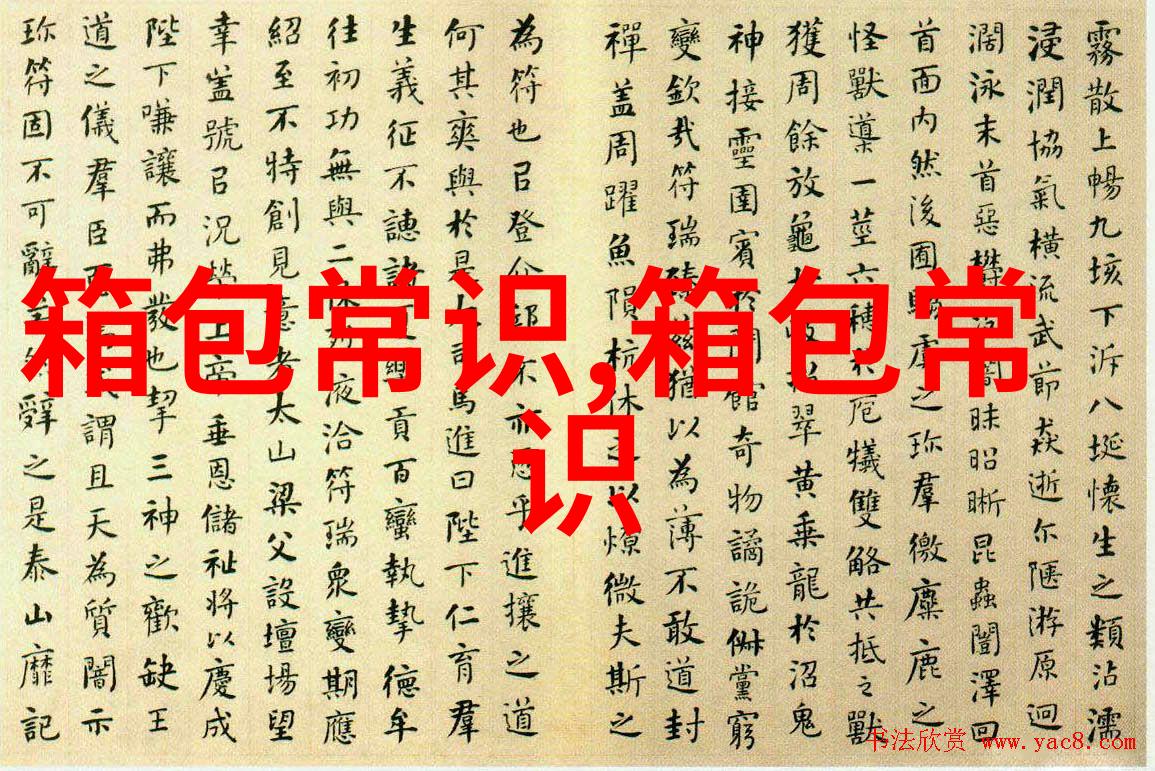 箱包常识,箱包常
识
霧散上暢九垓下泝八埏懷生之類沾濡
浸潤協氣橫流武節猋逝尔陿游原迥
濶泳末首惡欝闇昧昭晰昆蟲闓澤回
首面内然後囿虞之珍羣徼麋鹿之
怪獸導一莖六穗庖犧雙觡共抵之獸
獲周餘放龜翠黄乘龍於沼鬼
神接靈圉賓於館奇物譎詭俶黨窮
變欽㦲符瑞臻兹猶以為薄不敢道封
禪盖周躍魚隕杭休之以燎微夫斯之
為符也㠯登介不亦恧乎進攘之道
何其爽與於是司馬進曰陛下仁育羣
生義征不譓諸樂貢百蠻執摯德牟
往初功無與二休液洽符瑞衆變期應
紹至不特創見意者太山梁父設壇場望
幸盖號㠯況榮上帝垂恩儲祉將以慶成
陛下嗛讓而弗發也挈三神之歡缺王
道之儀羣臣恧謂且天為質闇示
珍符固不可辭辤之是泰山靡記
书法欣赏 www.yac8.com